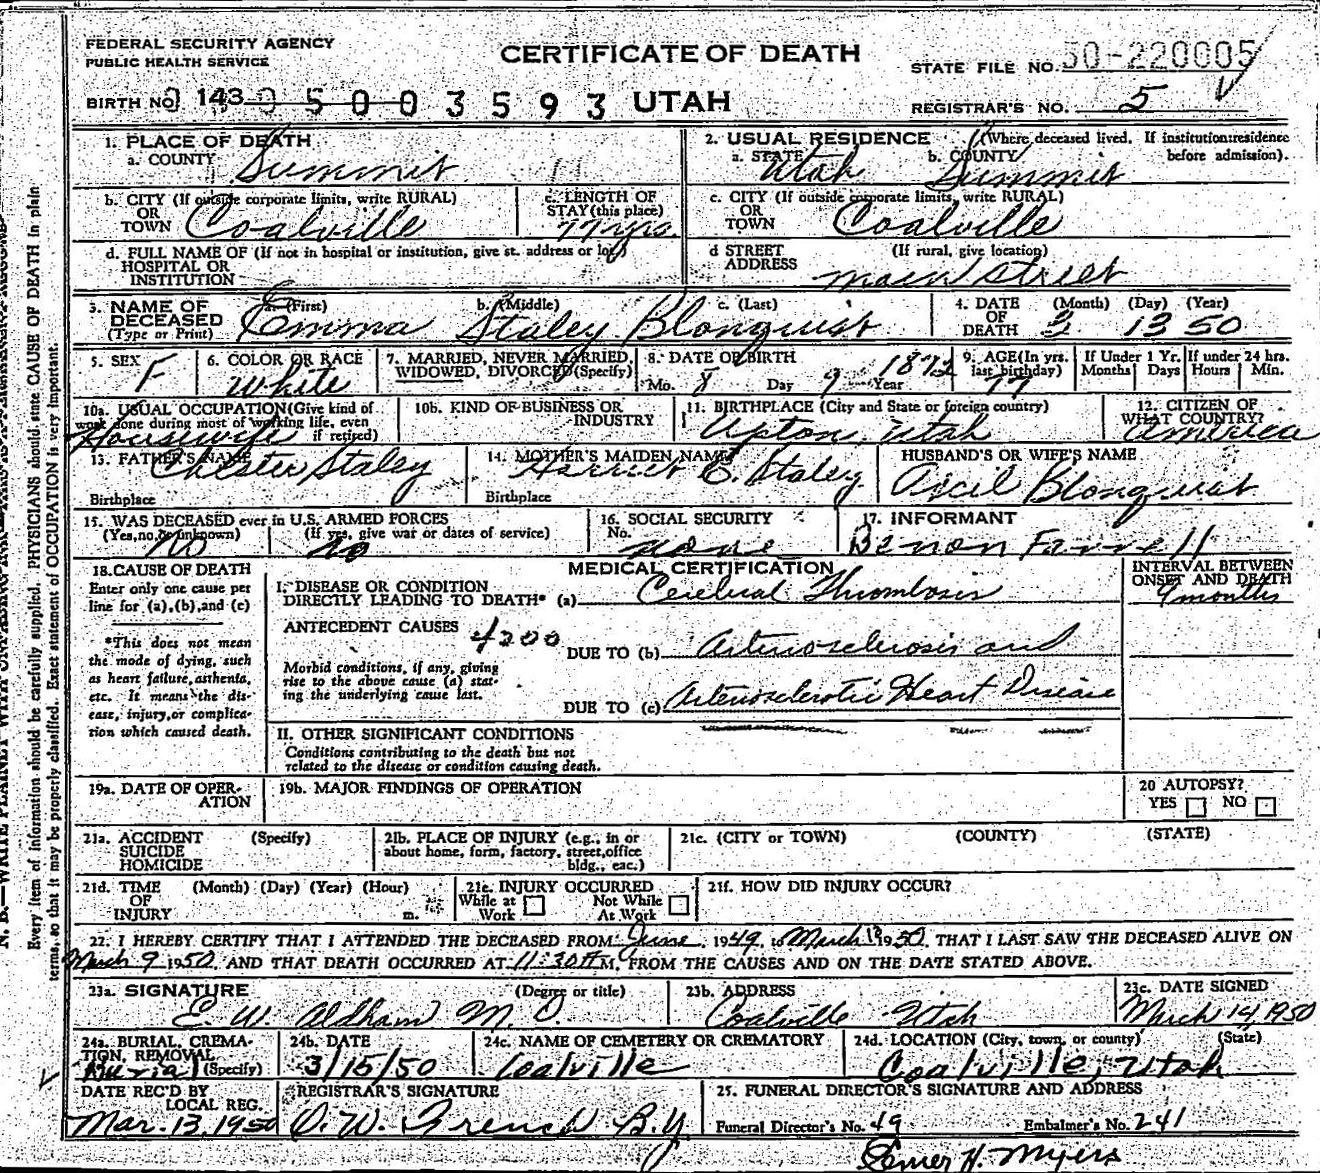 FEDERAL SECURITY AGENCY
PUBLIC HEALTH SERVICE
CERTIFICATE OF DEATH
STATE FILE NO. 50-220005
BIRTH NO. 143 0 5 0 0 3 5 9 3 UTAH
REGISTRAR'S NO. 5
1. PLACE OF DEATH
a. COUNTY Summit
2. USUAL RESIDENCE (Where deceased lived. If institution:residence before admission).
a. STATE Utah b. COUNTY Summit
b. CITY (If outside corporate limits, write RURAL) OR TOWN Coalville
c. LENGTH OF STAY (this place) 77 yrs.
c. CITY (If outside corporate limits, write RURAL) OR TOWN Coalville
d. FULL NAME OF (If not in hospital or institution, give st. address or loc)
HOSPITAL OR
INSTITUTION
d STREET ADDRESS (If rural, give location)
main street
3. NAME OF DECEASED (Type or Print)
a. (First) b. (Middle) c. (Last)
Emma Staley Blonquist
4. DATE OF DEATH (Month) (Day) (Year)
3 13 50
5. SEX F
6. COLOR OR RACE White
7. MARRIED, NEVER MARRIED, WIDOWED, DIVORCED (Specify)
8. DATE OF BIRTH
Mo. 8 Day 9 Year 1872
9. AGE (In yrs. last birthday) 77
If Under 1 Yr. Months Days
If under 24 hrs. Hours Min.
10a. USUAL OCCUPATION (Give kind of work done during most of working life, even if retired)
Housewife
10b. KIND OF BUSINESS OR INDUSTRY
11. BIRTHPLACE (City and State or foreign country)
Upton, Utah
12. CITIZEN OF WHAT COUNTRY?
America
13. FATHER'S NAME Chester Staley
Birthplace
14. MOTHER'S MAIDEN NAME Harriet E. Staley
Birthplace
HUSBAND'S OR WIFE'S NAME
Ascil Blonquist
15. WAS DECEASED ever in U.S. ARMED FORCES
(Yes, no, or unknown) (If yes, give war or dates of service)
No no
16. SOCIAL SECURITY No. none
17. INFORMANT
Benon Farrell
18. CAUSE OF DEATH
Enter only one cause per
line for (a), (b), and (c)
*This does not mean
the mode of dying, such
as heart failure, asthenia,
etc. It means the dis-
ease, injury, or complica-
tion which caused death.
MEDICAL CERTIFICATION
I. DISEASE OR CONDITION
DIRECTLY LEADING TO DEATH* (a) Cerebral Thrombosis
INTERVAL BETWEEN ONSET AND DEATH
9 months
ANTECEDENT CAUSES 4200
DUE TO (b) Arteriosclerosis and
Morbid conditions, if any, giving
rise to the above cause (a) stat-
ing the underlying cause last.
DUE TO (c) Arteriosclerotic Heart Disease
II. OTHER SIGNIFICANT CONDITIONS
Conditions contributing to the death but not
related to the disease or condition causing death.
19a. DATE OF OPERATION
19b. MAJOR FINDINGS OF OPERATION
20 AUTOPSY?
YES NO
21a. ACCIDENT (Specify)
SUICIDE
HOMICIDE
21b. PLACE OF INJURY (e.g., in or
about home, form, factory, street, office
bldg., eac.)
21c. (CITY or TOWN) (COUNTY) (STATE)
21d. TIME (Month) (Day) (Year) (Hour)
OF
INJURY m.
21e. INJURY OCCURRED
While at Work Not While At Work
21f. HOW DID INJURY OCCUR?
22. I HEREBY CERTIFY THAT I ATTENDED THE DECEASED FROM June, 1949, to March 13 1950, THAT I LAST SAW THE DECEASED ALIVE ON
March 9 1950, AND THAT DEATH OCCURRED AT 11:30 M. FROM THE CAUSES AND ON THE DATE STATED ABOVE.
23a. SIGNATURE (Degree or title)
E. W. Oldham M. D.
23b. ADDRESS
Coalville Utah
23c. DATE SIGNED
March 14, 1950
24a. BURIAL, CREMATION, REMOVAL (Specify)
Burial
24b. DATE
3/15/50
24c. NAME OF CEMETERY OR CREMATORY
Coalville
24d. LOCATION (City, town, or county) (State)
Coalville, Utah
DATE REC'D BY LOCAL REG.
Mar. 13, 1950
REGISTRAR'S SIGNATURE
O. W. French B.Y.
25. FUNERAL DIRECTOR'S SIGNATURE AND ADDRESS
Funeral Director's No. 49 Embalmer's No. 241
H. Myers
Every item of information should be carefully supplied. PHYSICIANS should state CAUSE OF DEATH in plain
terms, so that it may be properly classified. Exact statement of OCCUPATION is very important.